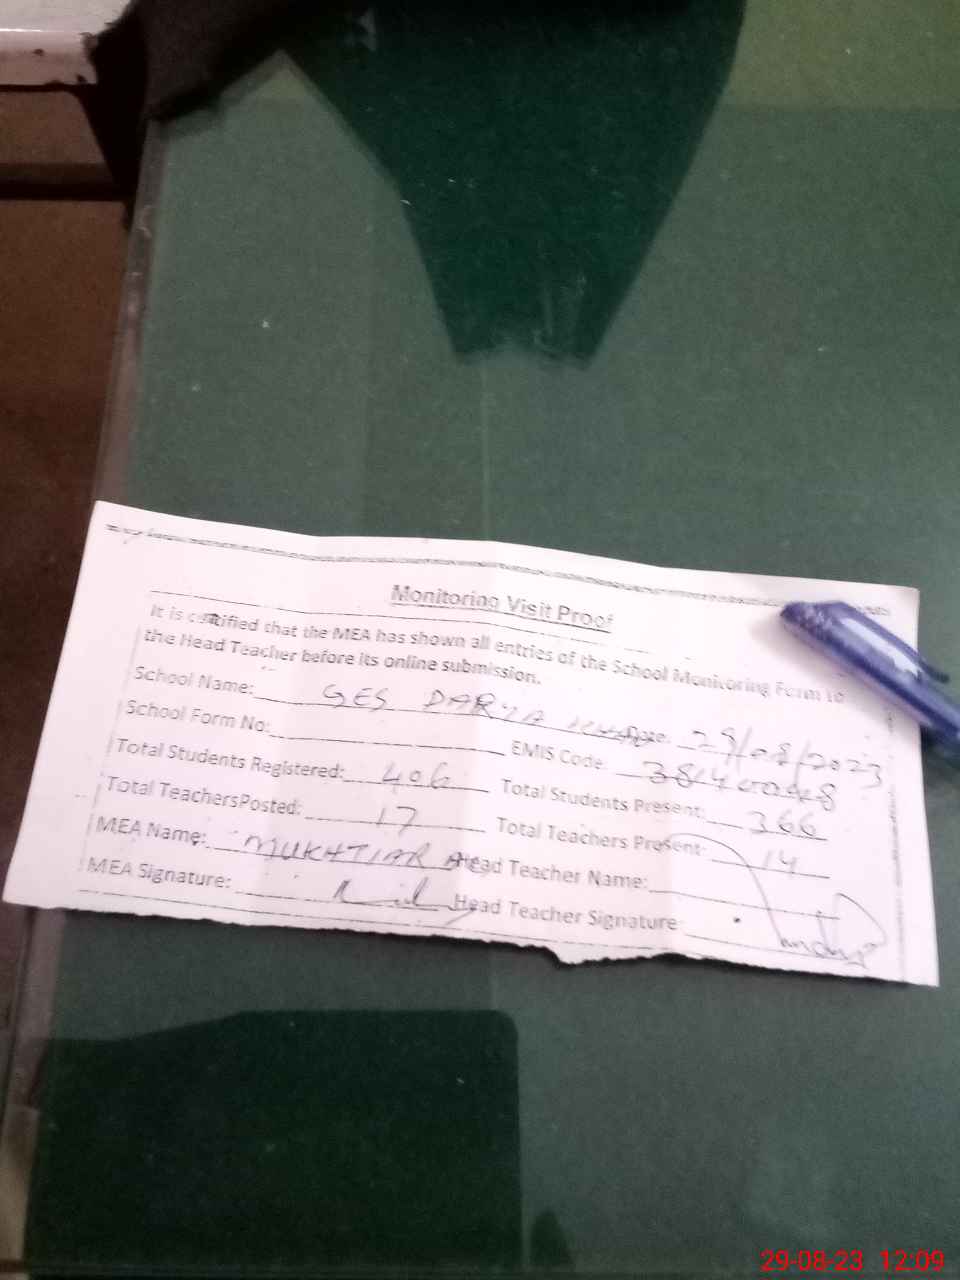 Monitoring Visit Proof
It is certified that the MEA has shown all entries of the School Monitoring Form to
the Head Teacher before its online submission.
School Name: GES DARYA Date: 29/08/2023
School Form No: EMIS Code:
Total Students Registered: 406 Total Students Present: 366
Total TeachersPosted: 17 Total Teachers Present: 14
MEA Name: MUKHTIAR Head Teacher Name:
MEA Signature: Head Teacher Signature
29-08-23 12:09